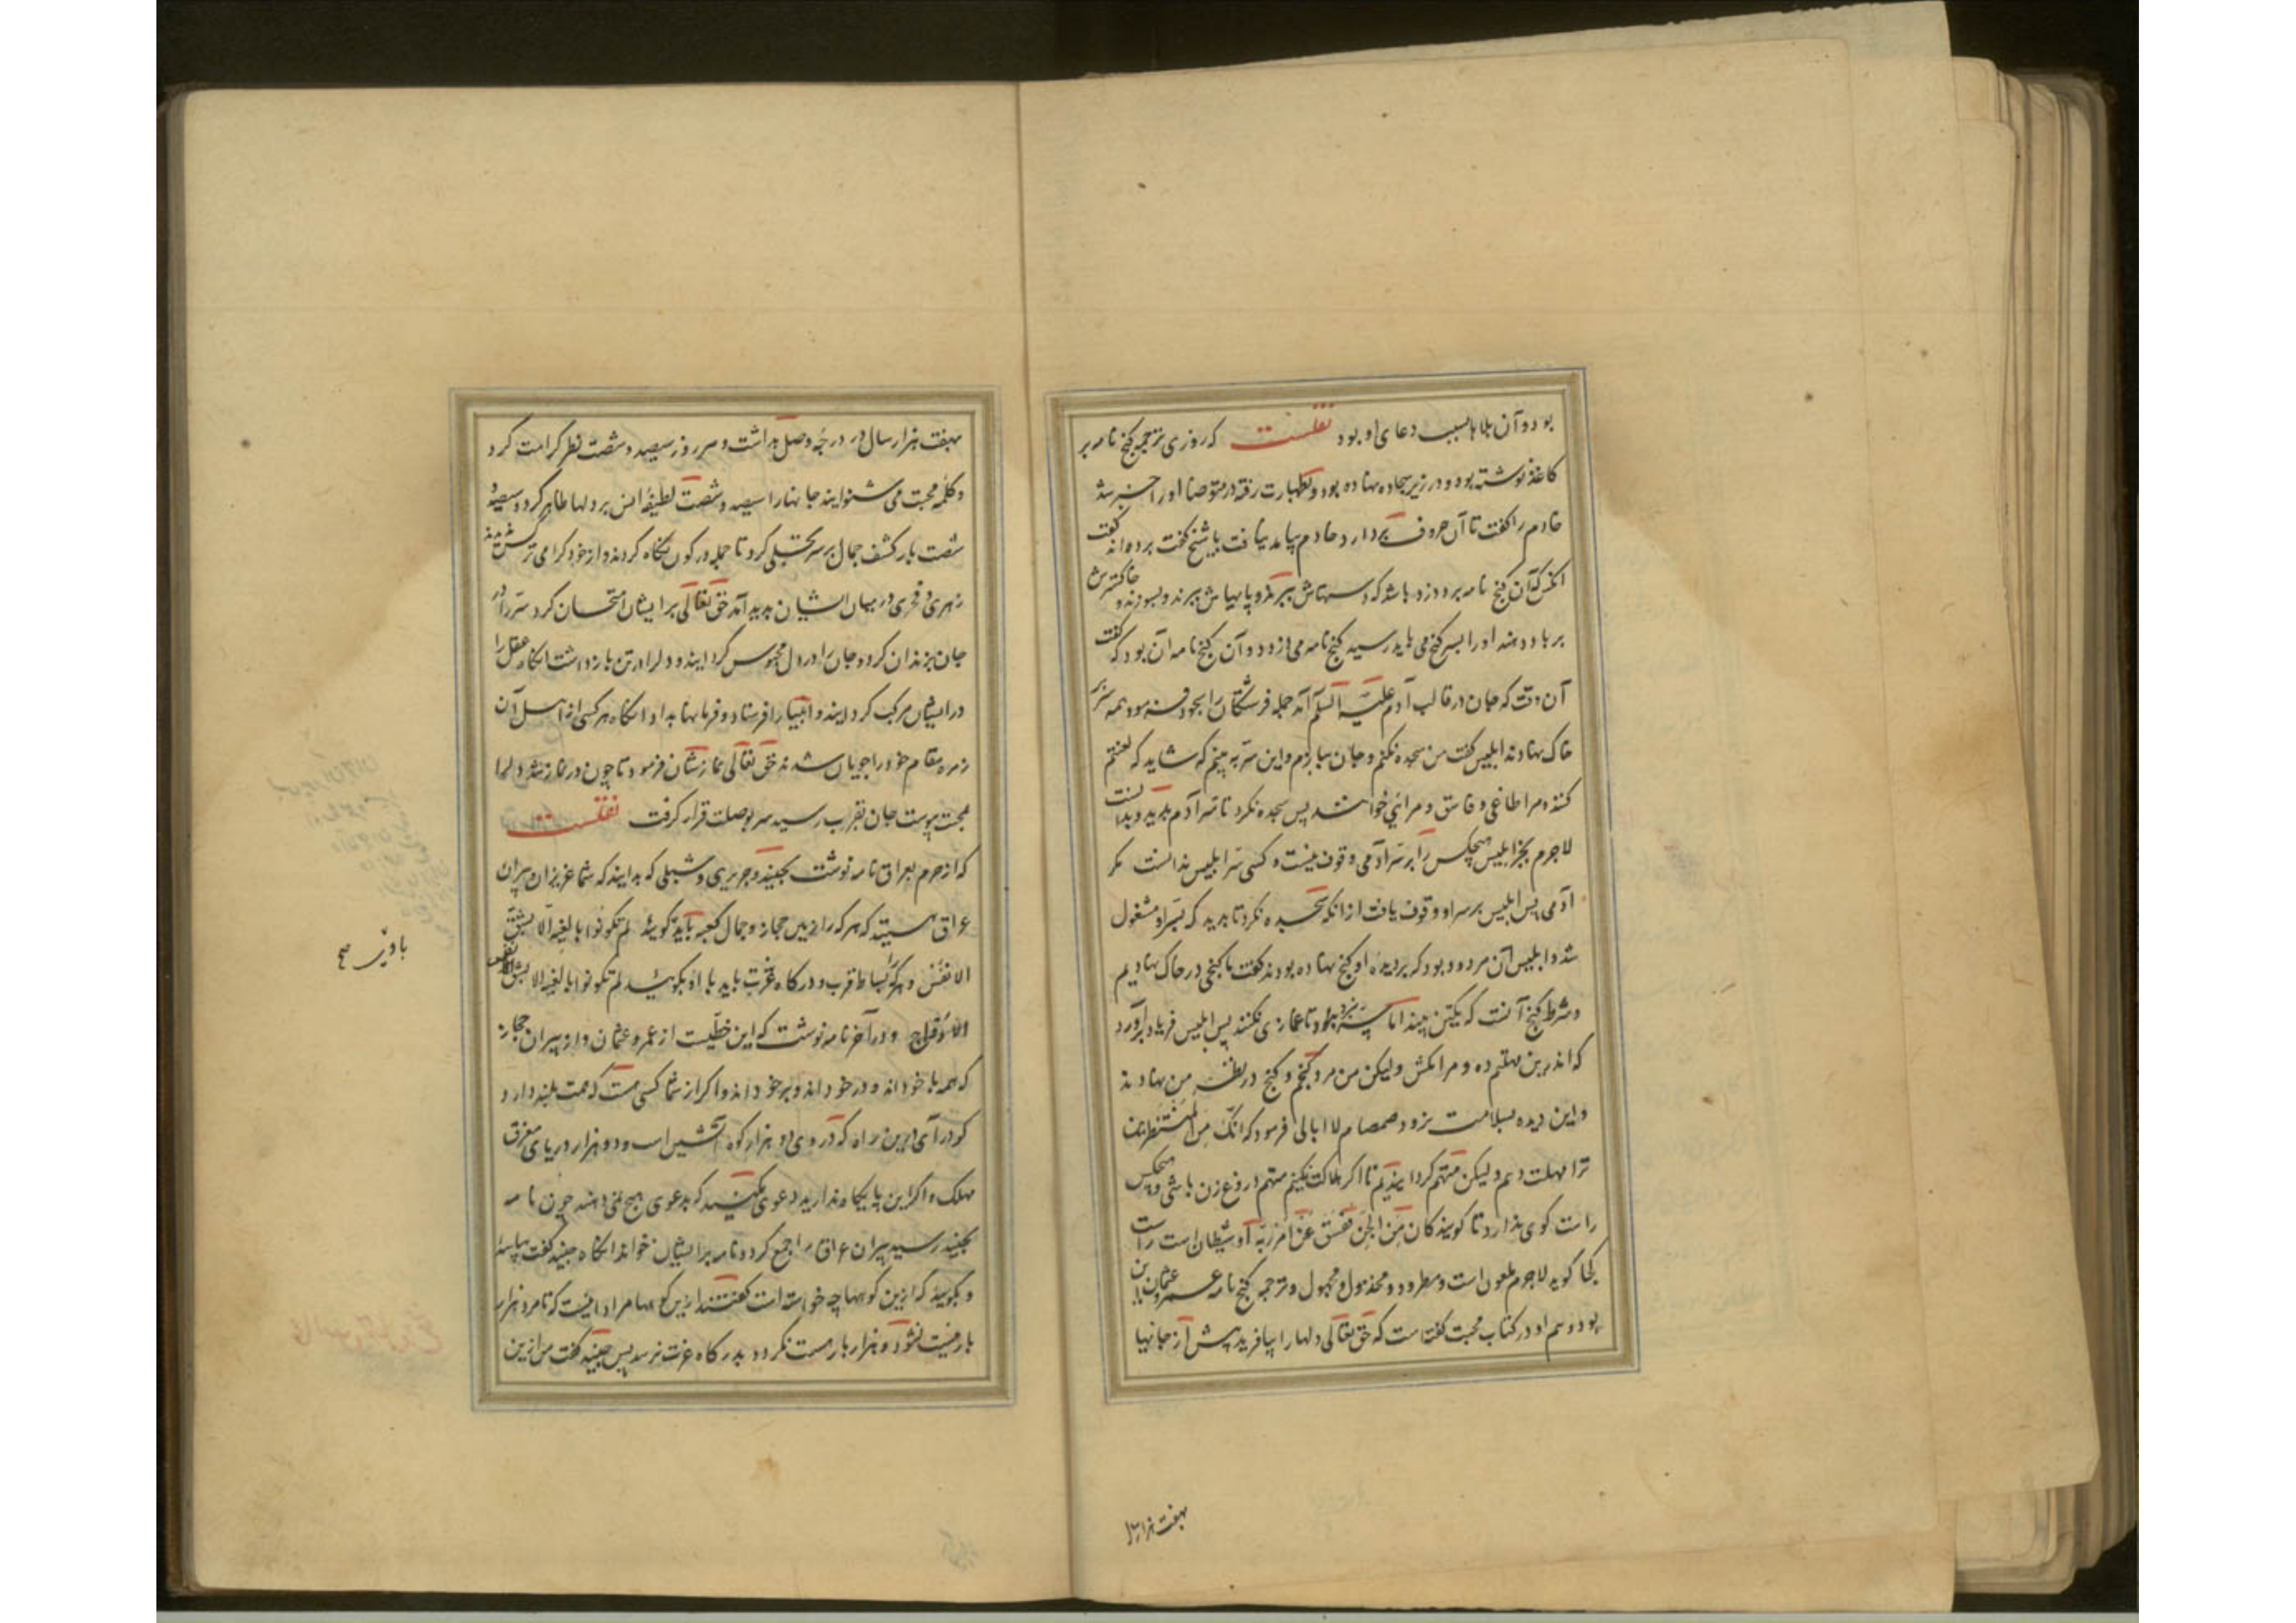 بود و آن بلاها بسبب دعای او بود نقلست که روزی ترجمه کنج نامه بر
کاغذ نوشته بود و در زیر سجاده نهاده بود و بطهارت رفته در متوضا او را خبر شد
خادم را کفت تا آن حروف بردارد خادم بیامد نیافت با شیخ کفت بردند کفت
آنکس که آن کنج نامه برد زود باشد که دستهاش ببرند و پایهاش ببرند و بسوزند و خاکسترش
بر باد دهند او را بسر کنج می باید رسید کنج نامه می دزدد و آن کنج نامه آن بود که کفت
آن وقت که جان در قالب آدم علیه السلم آمد جمله فرشتکان را سجود فرمود همه سر بر
خاک نهادند ابلیس کفت من سجده نکنم و جان ببازم و این سر به بینم که شاید که لعنتم
کنند و مرا طاغی و فاسق و مرائی خوانند پس سجده نکرد تا سر آدم بدید و بدانست
لاجرم بجز ابلیس هیچکس را بر سر آدمی وقوف نیست و کسی سر ابلیس ندانست مکر
آدمی پس ابلیس بر سر او وقوف یافت از آنکه سجده نکرد تا بدید که بسر او مشغول
شد و ابلیس آن مردود بود که بر دیده او کنج نهاده بودند کفت ما کنجی در خاک نهادیم
و شرط کنج آنست که یکتن بیند اما سرش ببرند تا غمازی نکند پس ابلیس فریاد برآورد
که اندرین مهلتم ده و مرا مکش ولیکن من مرد کنجم و کنج در نظر من نهادند
و این دیده بسلامت نرود صمصام لا ابالی فرمود که انک من المنتظرین
ترا مهلت دهم ولیکن متهم کردانیدیم تا اکر هلاکت نکنیم متهم و دروغ زن باشی و هیچکس
راست کوی ندارد تا کویند کان من الجن ففسق عن امر ربه او شیطان است راست
کجا کوید لاجرم ملعون است و مطرود و مخذول و مجهول و ترجمه کنج نامه عمرو بن عثمان این
بود و هم او در کتاب محبت کفته است که حق تعالی دلها را بیافرید پیش از جانها
بهفت هزار سال
بهفت هزار سال و در درجه وصل بداشت و هر روز سیصد و شصت نظر کرامت کرد
و کلمه محبت می شنوانید جانها را سیصد و شصت لطیفه انس بر دلها ظاهر کرد و سیصد و
شصت بار کشف جمال بر سر تجلی کرد تا جمله در کون نکاه کردند و از خود کرامی تر کس ندیدند
زهوی و فخری در میان ایشان بدید آمد حق تعالی بر ایشان امتحان کرد سر را در
جان بزندان کرد و جان را در دل محبوس کردانید و دل را در تن بازداشت آنکاه عقل را
در ایشان مرکب کردانید و انبیا را فرستاد و فرمانها بداد آنکاه هر کسی از اهل آن
زمره مقام خود را جویان شدند حق تعالی نمازشان فرمود تا چون در نماز شد دل با
محبت پیوست جان بقربت رسید سر بوصلت قرار کرفت نقلست
که از حرم بعراق نامه نوشت بجنید و جریری و شبلی که بدانید که شما عزیزان و پیران
عراق هستید که هر که را زمین حجاز و جمال کعبه باید کوئید لم تکونوا بالغیه الا بشق
الانفس و هر که را بساط قرب و درکاه عزت باید با او بکوئید لم تکونوا بالغیه الا بشق الانفس
الارواح و در آخر نامه نوشت که این خطیست از عمرو عثمان و از پیران حجاز
که همه با خود اند و در خود اند و بر خود اند و اکر از شما کسی هست که همت بلند دارد
کو درآی درین راه که در وی دو هزار کوه آتشین است و دو هزار دریای مغرق
مهلک و اکر این پایکاه ندارید دعوی مکنید که بدعوی هیچ نمی دهند چون نامه
بجنید رسید پیران عراق را جمع کرد و نامه بر ایشان خواند آنکاه جنید کفت بیائید
و بکویید که ازین کوهها چه خواسته است کفتند ازین کوهها مراد آنست که تا مرد هزار
بار نیست نشود و هزار بار هست نکردد بدرکاه عزت نرسد پس جنید کفت من ازین